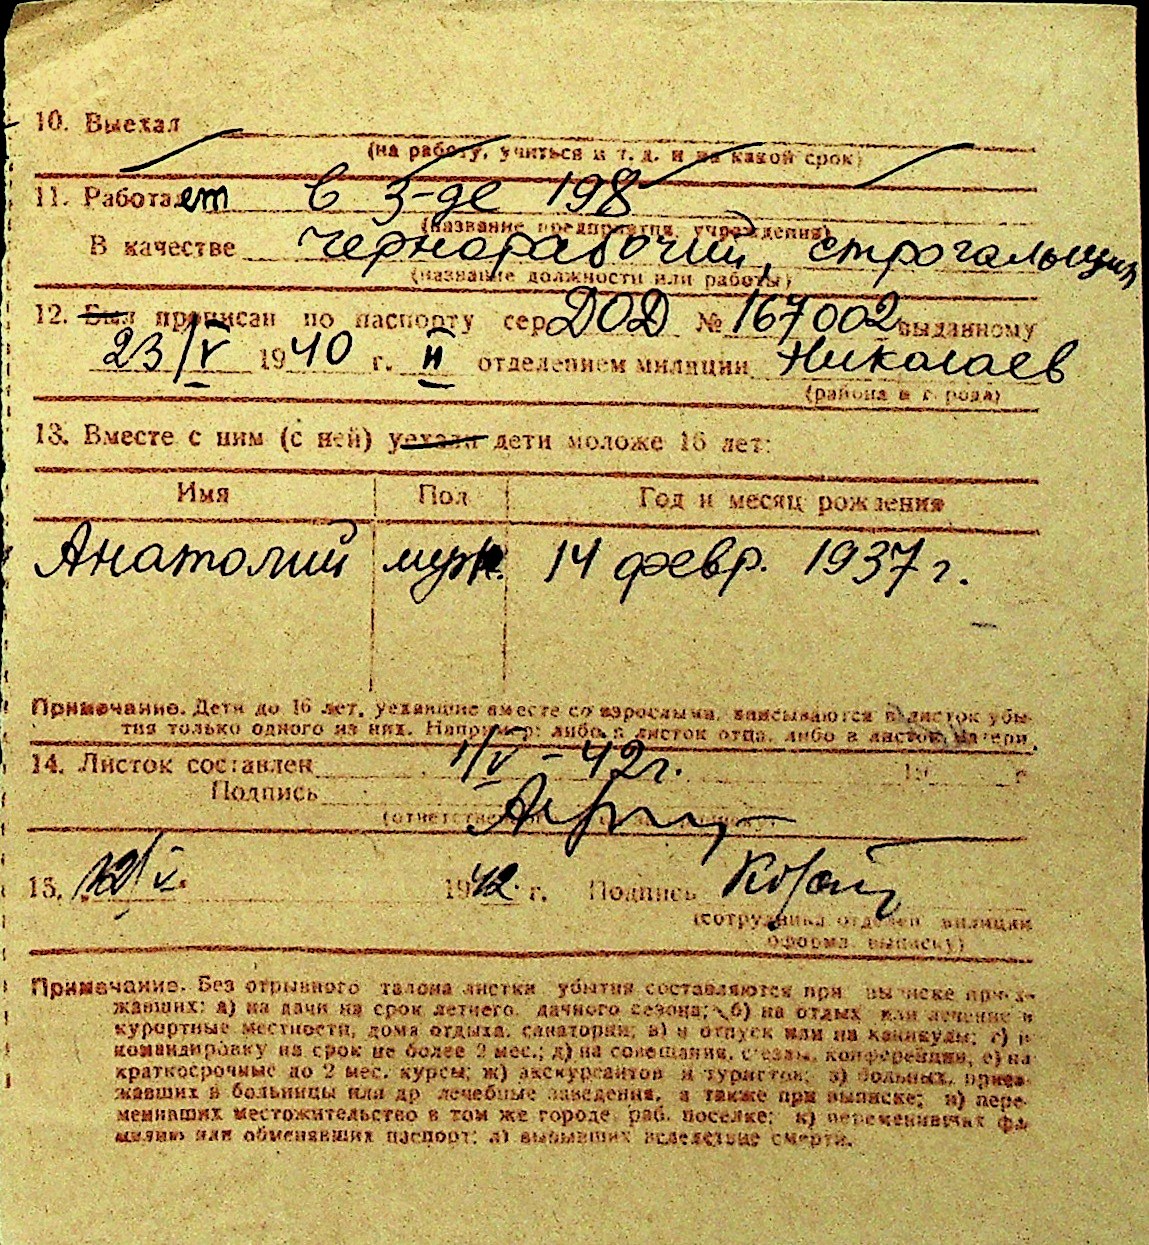 10. Выехал
(на работу, учиться и т. д. и на какой срок)
11. Работает в з-де 198
(название предприятия, учреждения)
В качестве чернорабочий, строгальщик
(название должности или работы)
12. Был прописан по паспорту сер ДОД № 167002 выданному
23/V 1940 г. II отделением милиции Николаев
(района и города)
13. Вместе с ним (с ней) уехали дети моложе 16 лет:
Имя Пол Год и месяц рождения
Анатолий муж. 14 февр. 1937 г.
Примечание. Дети до 16 лет, уехавшие вместе со взрослыми, вписываются в листок убы-
тия только одного из них. Например: либо в листок отца, либо в листок матери.
14. Листок составлен 1/V - 42 г. 19 г
Подпись
15. 12/V. 1942 г. Подпись
(сотрудника отделен милиции
оформл. выписку)
Примечание. Без отрывного талона листки убытия составляются при выписке приез-
жавших: а) на дачи на срок летнего, дачного сезона; б) на отдых или лечение в
курортные местности, дома отдыха, санатории; в) в отпуск или на каникулы; г) в
командировку на срок не более 2 мес.; д) на совещания, съезды, конференции; е) на
краткосрочные до 2 мес. курсы; ж) экскурсантов и туристов; з) больных, приез-
жавших в больницы или др лечебные заведения, а также при выписке; и) пере-
менивших местожительство в том же городе, раб. поселке; к) переменивших фа-
милию или обменявших паспорт; л) выбывших вследствие смерти.